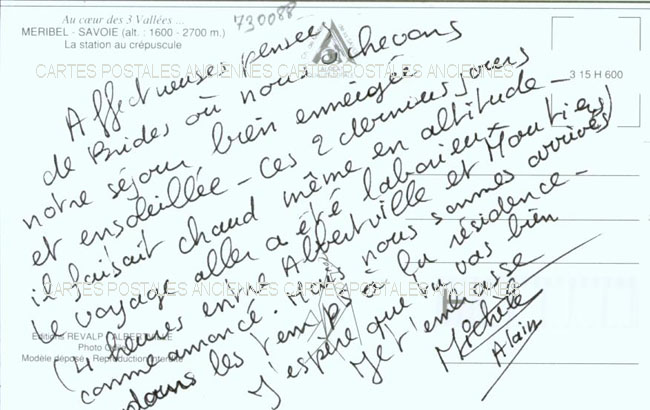 Au cœur des 3 Vallées ...
MERIBEL - SAVOIE (alt. : 1600 - 2700 m.)
La station au crépuscule
730088
3 15 H 600
CARTES POSTALES ANCIENNES CARTES POSTALES ANCIENNES
Affectueuses pensées
de Brides où nous achevons
notre séjour bien enneigée
et ensoleillée - Ces 2 derniers jours
il faisait chaud même en altitude -
Le voyage aller a été laborieux
(4 heures entre Albertville et Moutiers)
comme annoncé. Mais nous sommes arrivés
dans les temps à la résidence -
J'espère que tu vas bien
Je t'embrasse
Michèle
Alain
CARTES POSTALES ANCIENNES CARTES POSTALES ANCIENNES
Editions REVALP ALBERTVILLE
Photo
Modèle déposé - Reproduction interdite